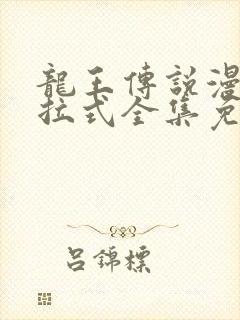 龍王傳說漫
拉式全集免
呂錦標